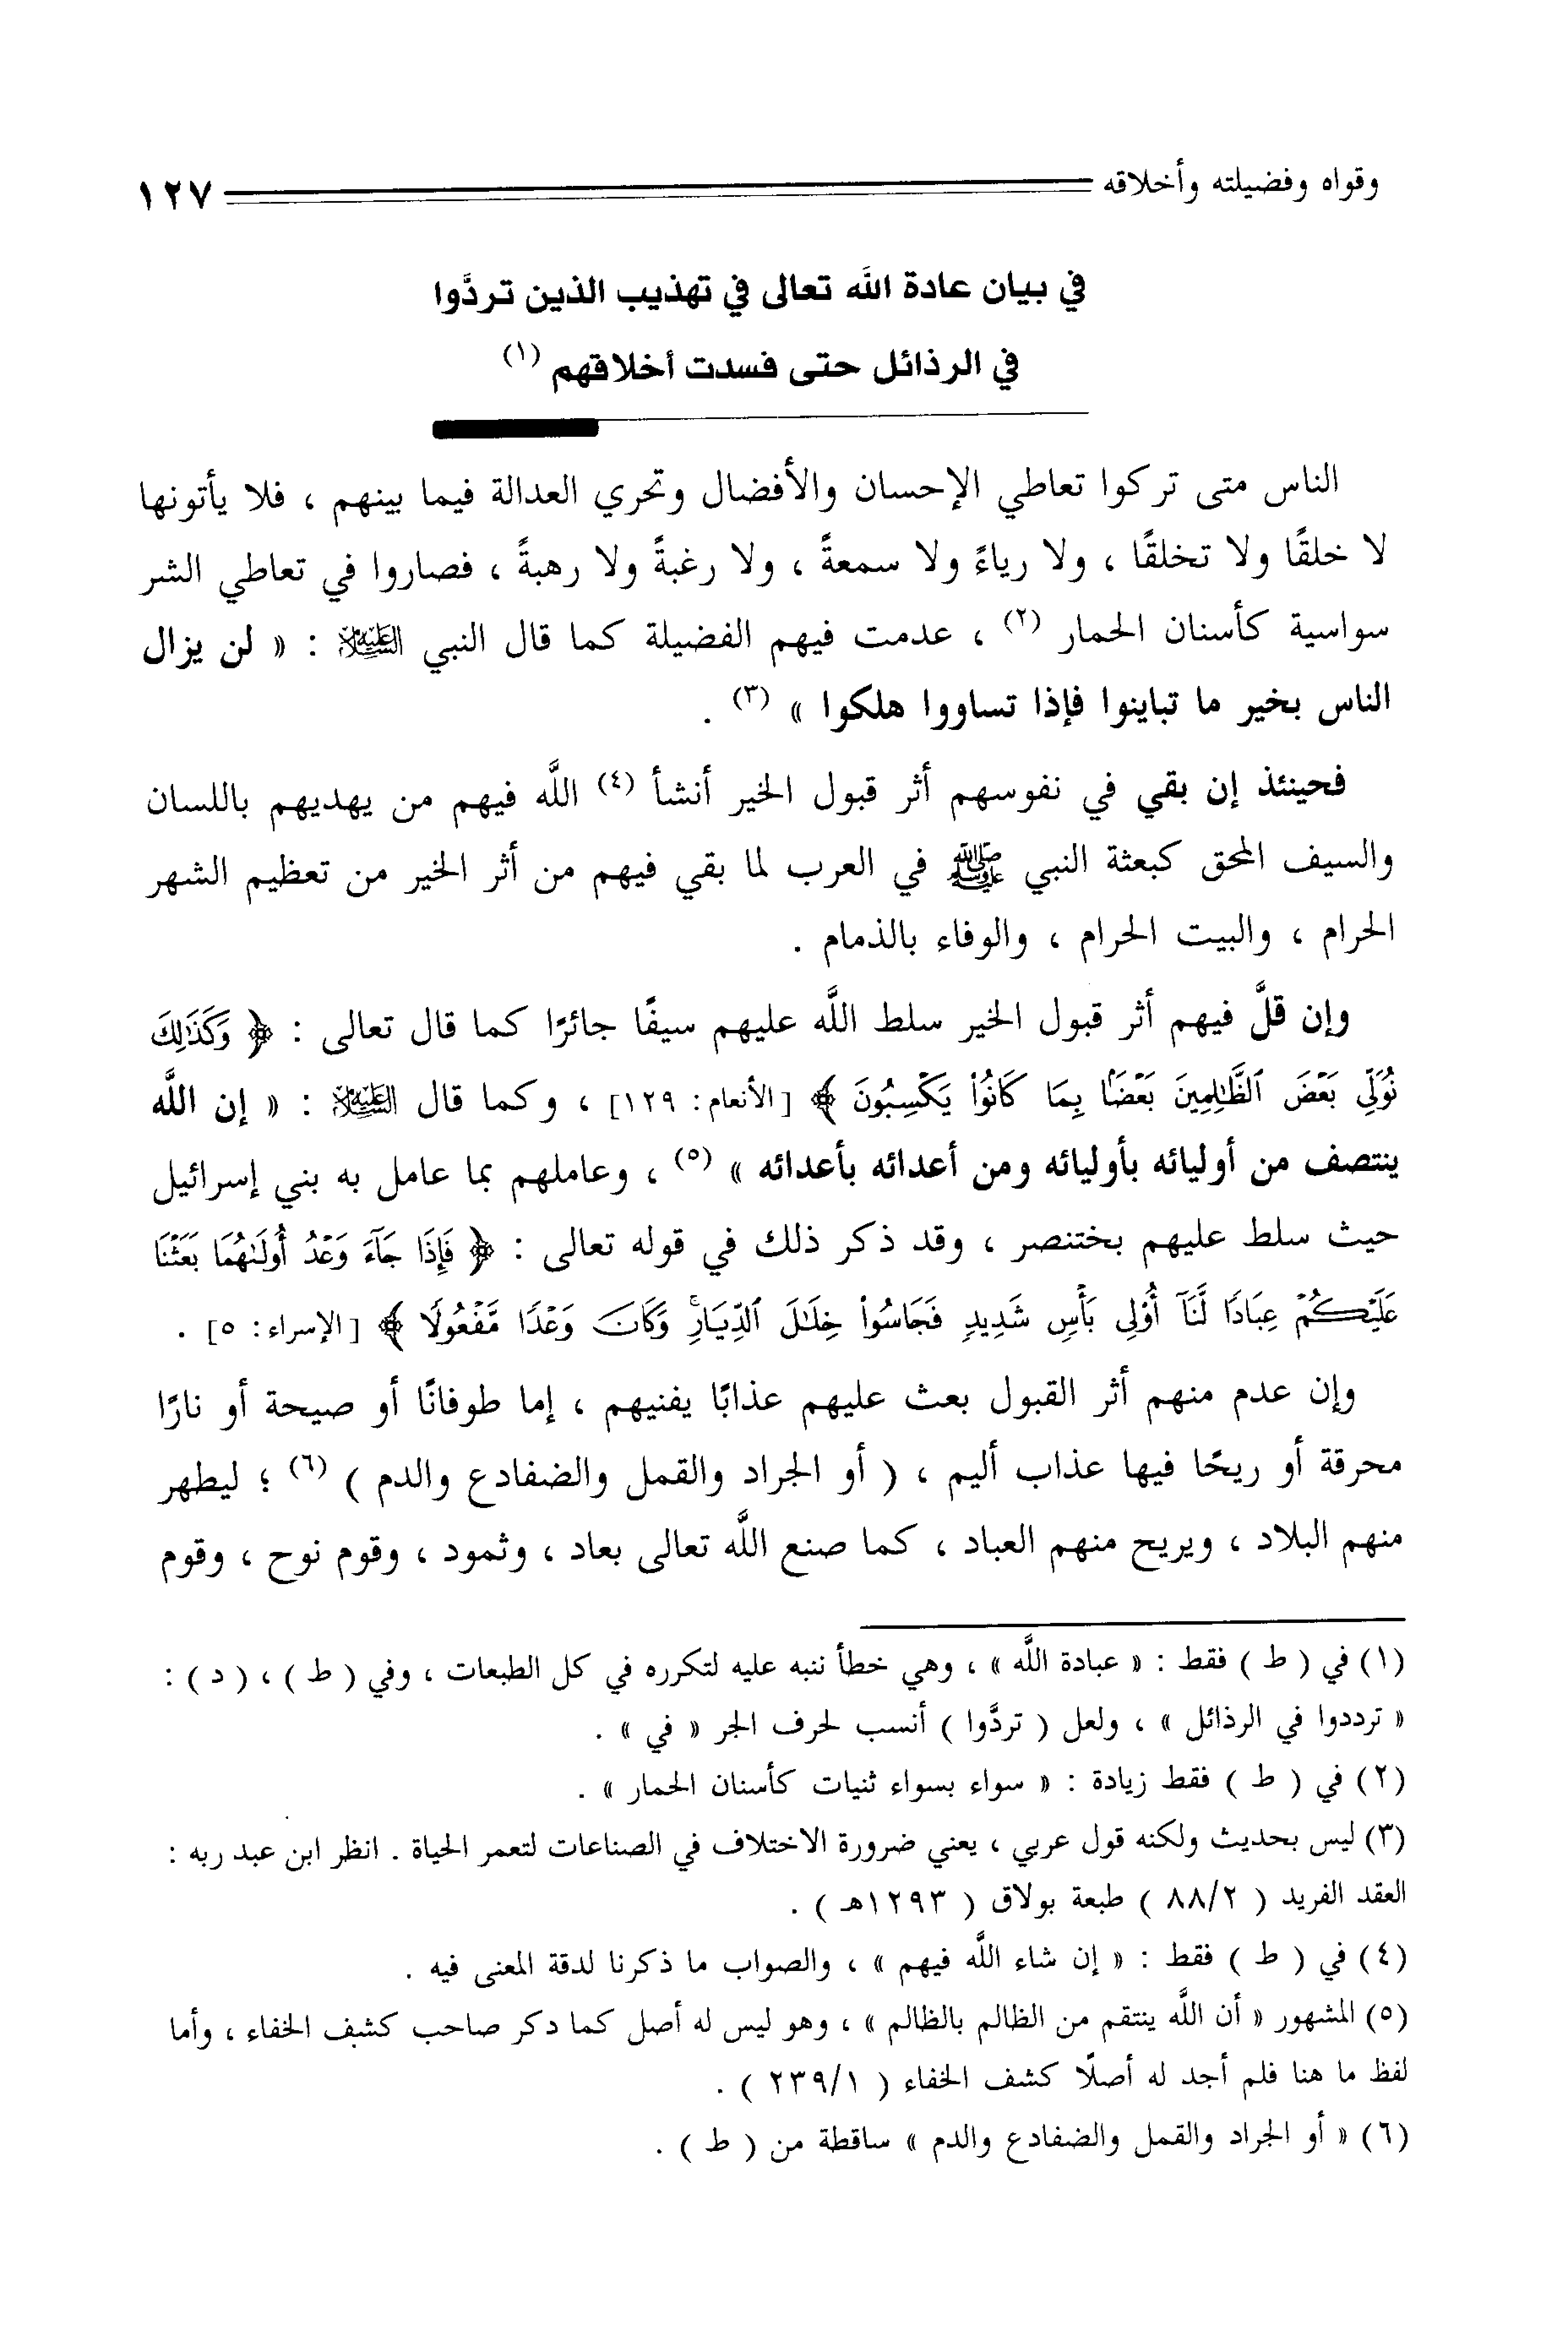 وقواه وفضيلته وأخلاقه ١٢٧
في بيان عادة اللَّه تعالى في تهذيب الذين تردَّوا
في الرذائل حتى فسدت أخلاقهم (١)
الناس متى تركوا تعاطي الإحسان والأفضال وتحري العدالة فيما بينهم ، فلا يأتونها
لا خلقًا ولا تخلقًا ، ولا رياءً ولا سمعةً ، ولا رغبةً ولا رهبةً ، فصاروا في تعاطي الشر
سواسية كأسنان الحمار (٢) ، عدمت فيهم الفضيلة كما قال النبي عليه السلام : « لن يزال
الناس بخير ما تباينوا فإذا تساووا هلكوا » (٣) .
فحينئذ إن بقي في نفوسهم أثر قبول الخير أنشأ (٤) اللَّه فيهم من يهديهم باللسان
والسيف المحق كبعثة النبي ﷺ في العرب لما بقي فيهم من أثر الخير من تعظيم الشهر
الحرام ، والبيت الحرام ، والوفاء بالذمام .
وإن قلَّ فيهم أثر قبول الخير سلط اللَّه عليهم سيفًا جائرًا كما قال تعالى : ﴿ وَكَذَٰلِكَ
نُوَلِّى بَعْضَ ٱلظَّٰلِمِينَ بَعْضًۢا بِمَا كَانُوا۟ يَكْسِبُونَ ﴾ [الأنعام: ١٢٩] ، وكما قال عليه السلام : « إن اللَّه
ينتصف من أوليائه بأوليائه ومن أعدائه بأعدائه » (٥) ، وعاملهم بما عامل به بني إسرائيل
حيث سلط عليهم بختنصر ، وقد ذكر ذلك في قوله تعالى : ﴿ فَإِذَا جَآءَ وَعْدُ أُولَىٰهُمَا بَعَثْنَا
عَلَيْكُمْ عِبَادًا لَّنَآ أُو۟لِى بَأْسٍ شَدِيدٍ فَجَاسُوا۟ خِلَٰلَ ٱلدِّيَارِ ۚ وَكَانَ وَعْدًا مَّفْعُولًا ﴾ [الإسراء: ٥] .
وإن عدم منهم أثر القبول بعث عليهم عذابًا يفنيهم ، إما طوفانًا أو صيحة أو نارًا
محرقة أو ريحًا فيها عذاب أليم ، ( أو الجراد والقمل والضفادع والدم ) (٦) ؛ ليطهر
منهم البلاد ، ويريح منهم العباد ، كما صنع اللَّه تعالى بعاد ، وثمود ، وقوم نوح ، وقوم
(١) في ( ط ) فقط : « عبادة اللَّه » ، وهي خطأ ننبه عليه لتكرره في كل الطبعات ، وفي ( ط ) ، ( د ) :
« ترددوا في الرذائل » ، ولعل ( تردَّوا ) أنسب لحرف الجر « في » .
(٢) في ( ط ) فقط زيادة : « سواء بسواء ثنيات كأسنان الحمار » .
(٣) ليس بحديث ولكنه قول عربي ، يعني ضرورة الاختلاف في الصناعات لتعمر الحياة . انظر ابن عبد ربه :
العقد الفريد ( ٨٨/٢ ) طبعة بولاق ( ١٢٩٣هـ ) .
(٤) في ( ط ) فقط : « إن شاء اللَّه فيهم » ، والصواب ما ذكرنا لدقة المعنى فيه .
(٥) المشهور « أن اللَّه ينتقم من الظالم بالظالم » ، وهو ليس له أصل كما دكر صاحب كشف الخفاء ، وأما
لفظ ما هنا فلم أجد له أصلًا كشف الخفاء ( ٢٣٩/١ ) .
(٦) « أو الجراد والقمل والضفادع والدم » ساقطة من ( ط ) .